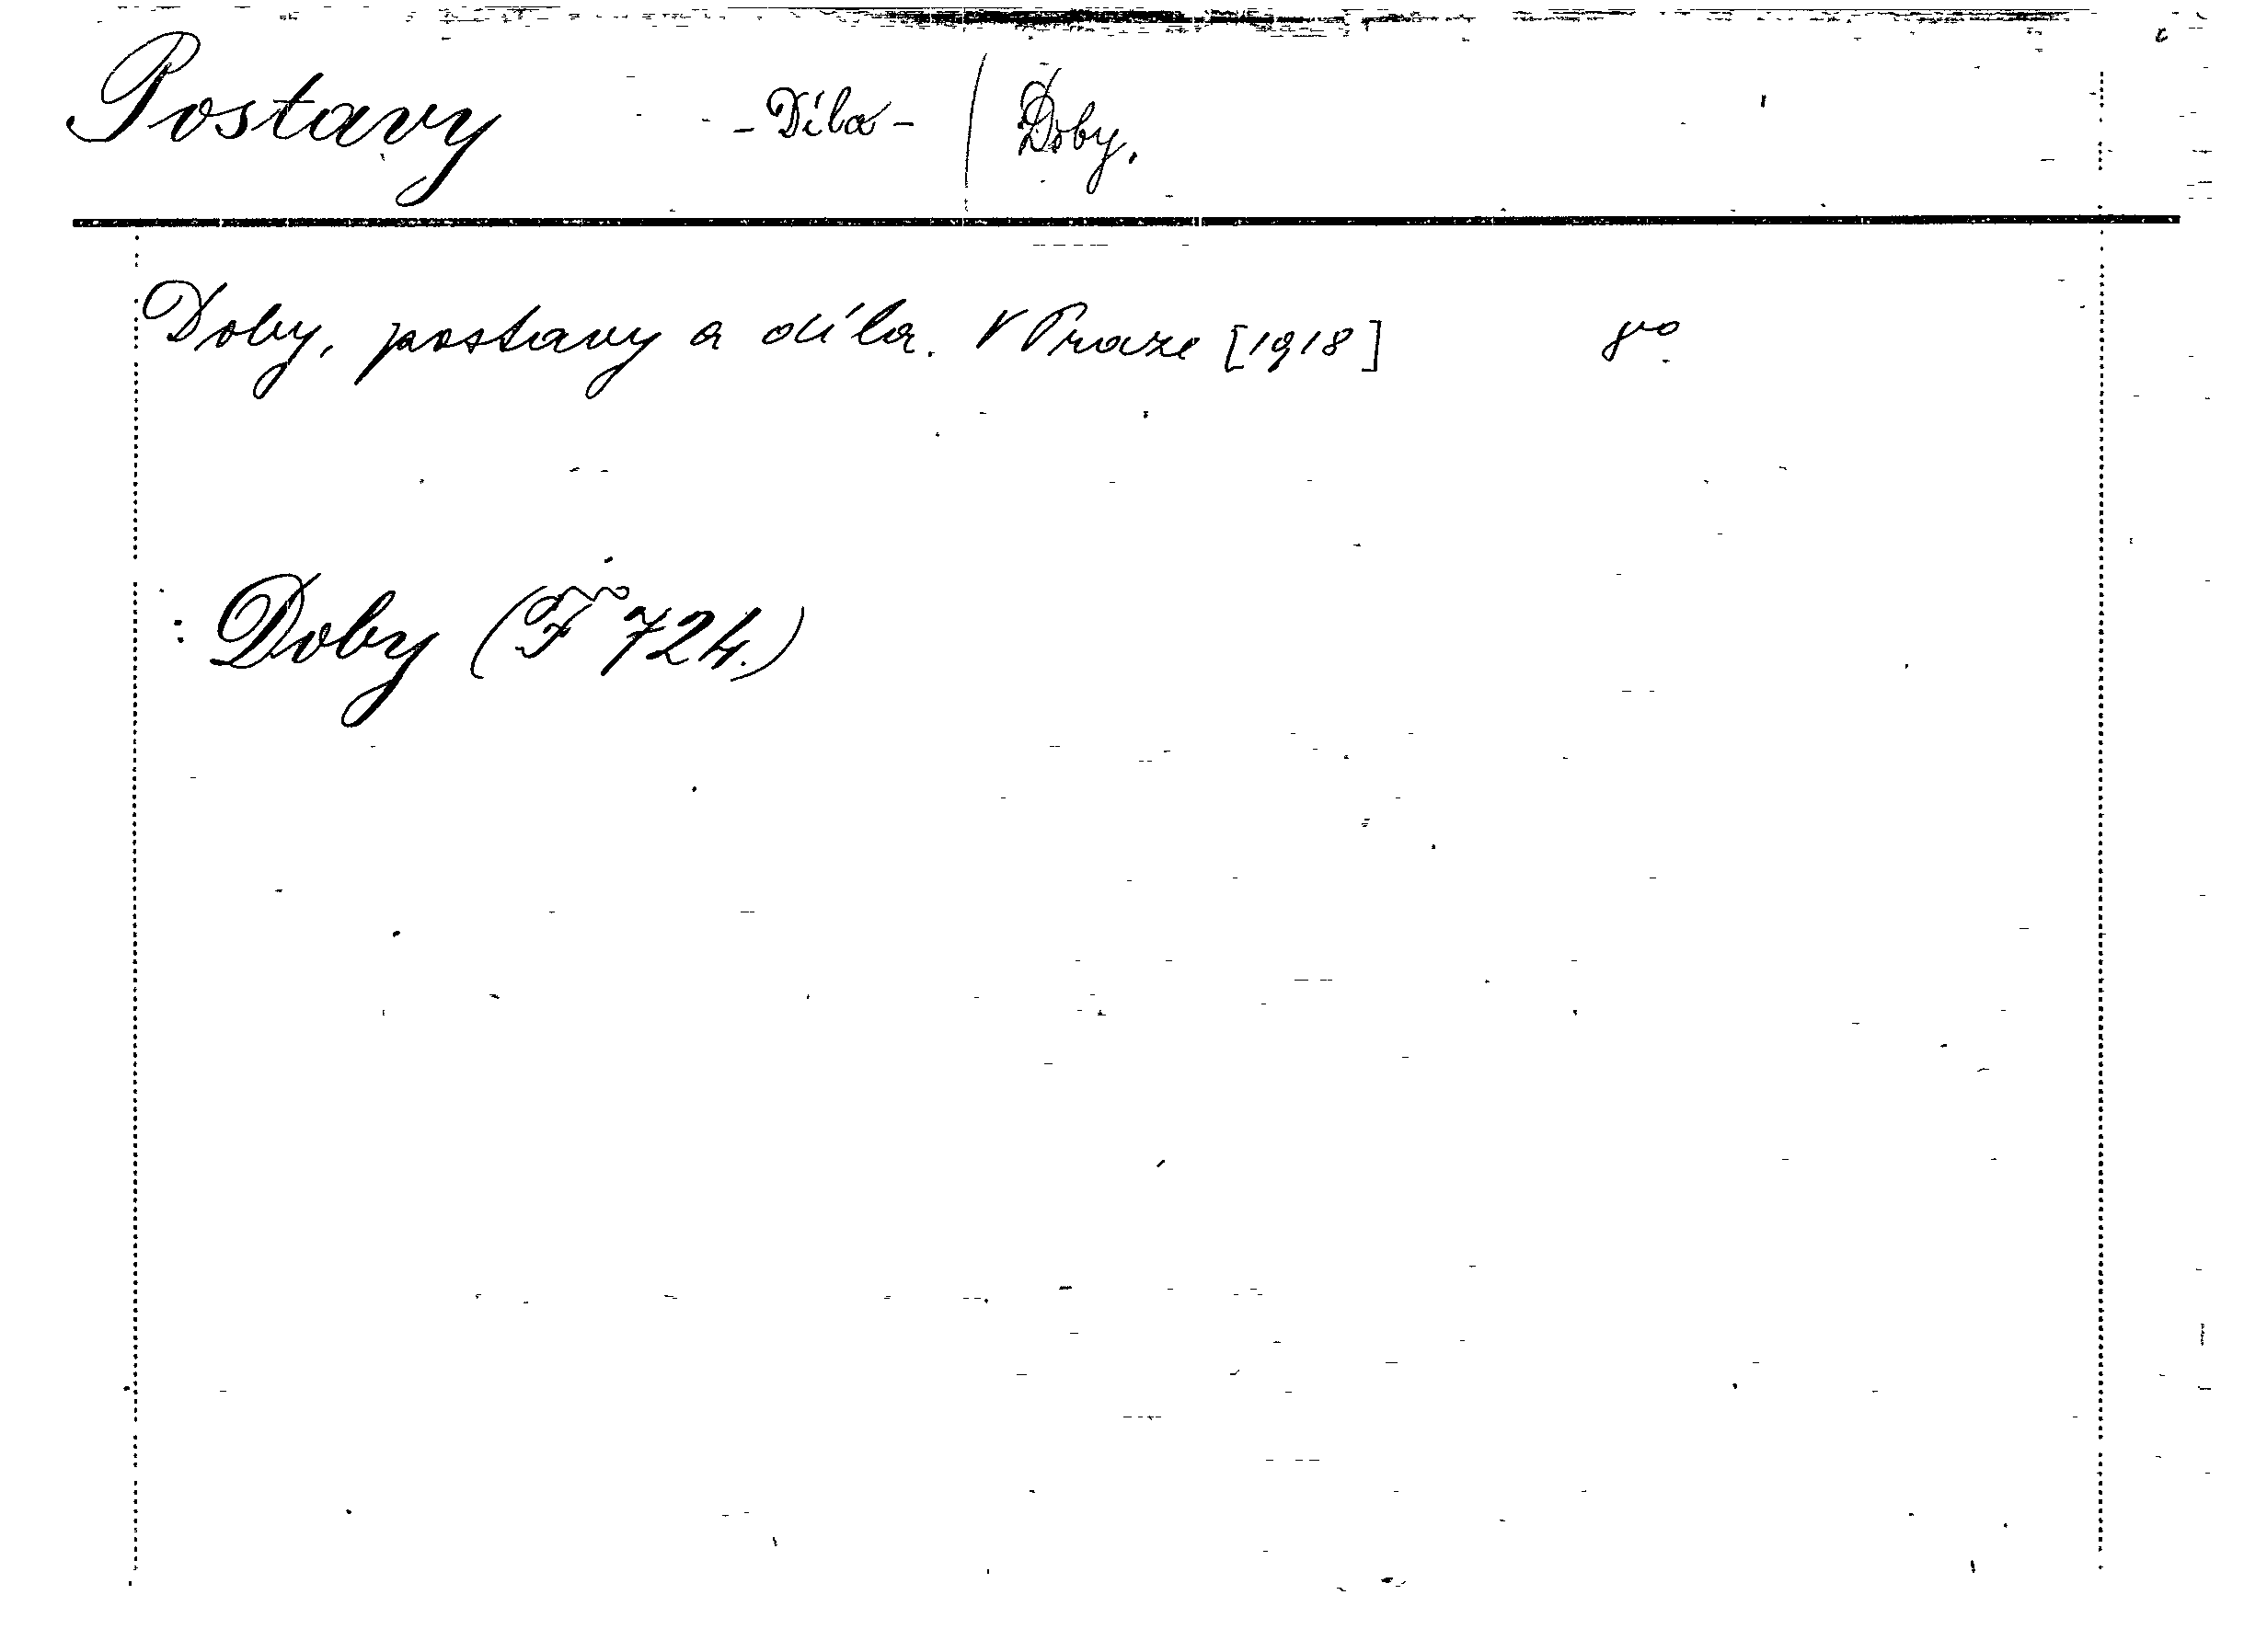 Postavy - Díla - | Doby.
Doby, postavy a díla. V Praze [1918] 8vo
: Doby (F 724.)